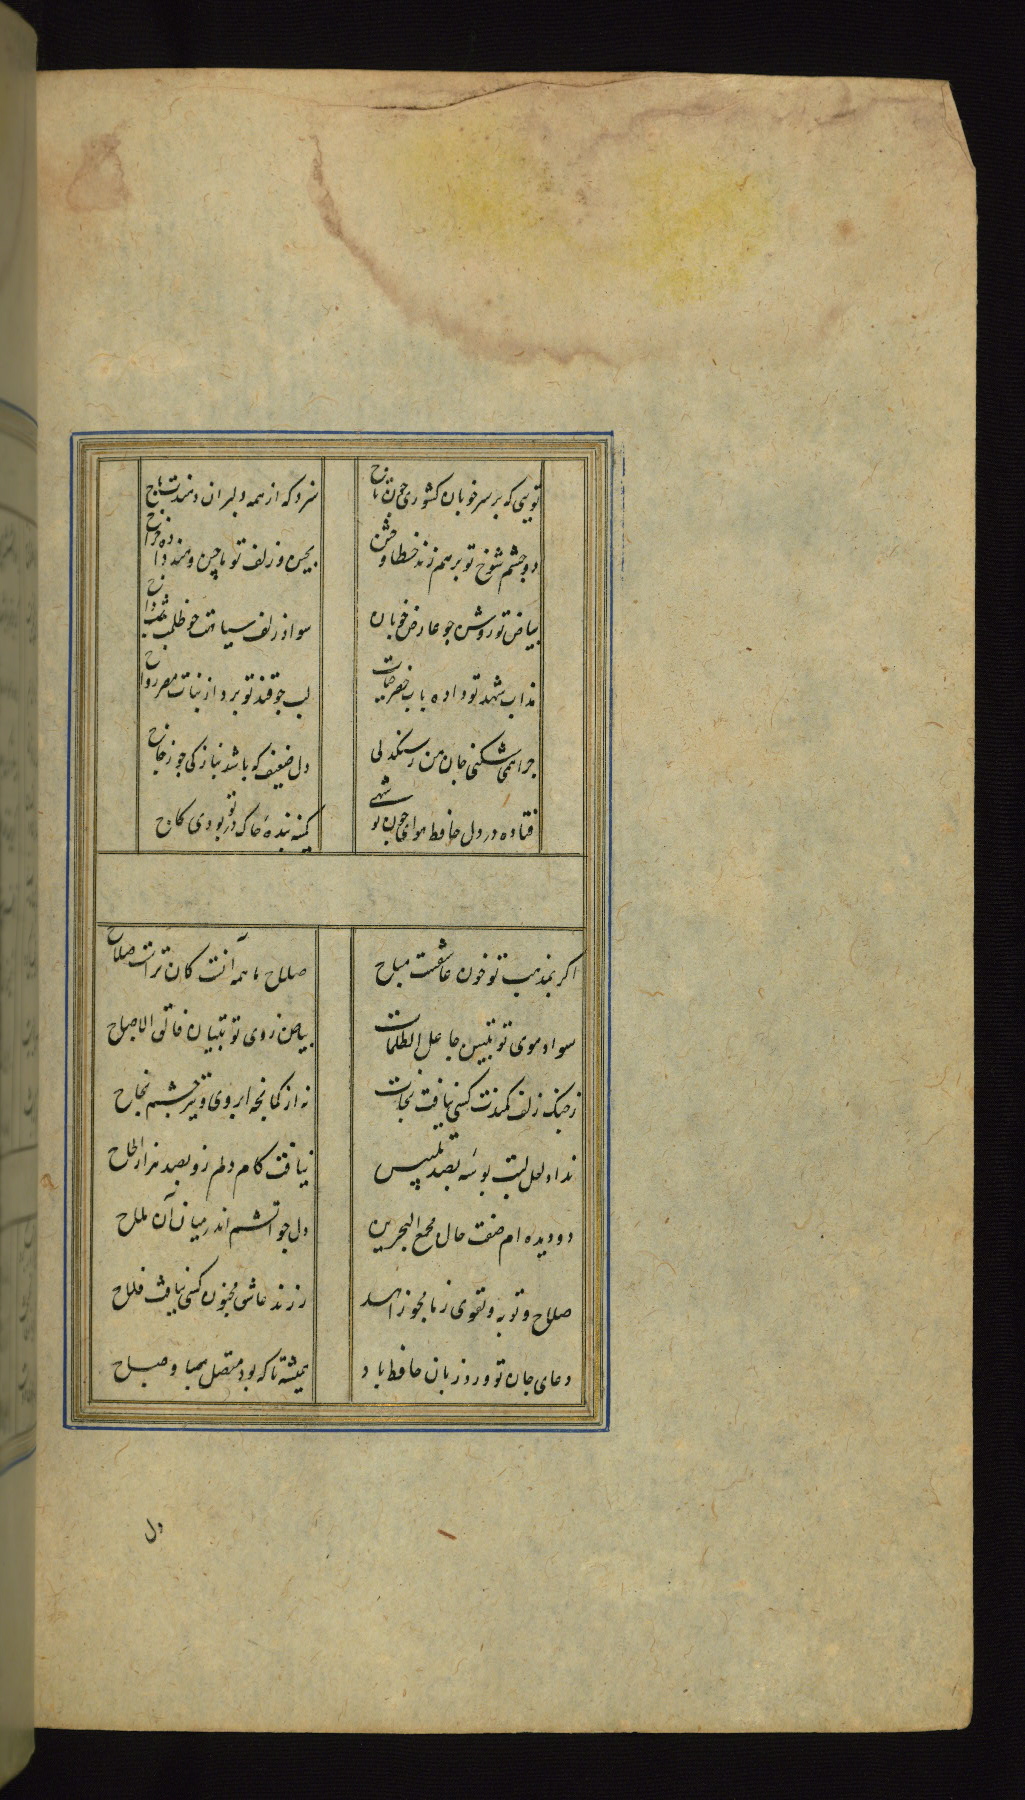 تویی که بر سر خوبان کشوری چون تاج
سزد که از همه دلبران دهندت باج
دو چشم شوخ تو برهم زند خطا و ختن
بچین و زلف تو ماچین و هند داده خراج
بیاض تو روشن چو عارض خوبان
سواد زلف سیاهت چو ظلمت داج
مذاب شهد تو داده بآب خضر حیات
لب چو قند تو برد از نبات مصر رواج
چرا همی شکنی جان من ز سنگدلی
دل ضعیف که باشد بنازکی چو زجاج
فتاده در دل حافظ هوای چون تو شهی
کمینه بندهٔ خاک در تو بودی کاج
اگر بمذهب تو خون عاشقست مباح
صلاح ما همه آنست کان تراست صلاح
سواد موی تو تبیین جاعل الظلمات
بیاض روی تو تبیان فالق الاصباح
ز چنگ زلف کمندت کسی نیافت نجات
نه از کمانچه ابروی و تیر چشم نجاح
نداد لعل لبت بوسه بصد تلبیس
نیافت کام دلم زو بصد هزار الحاح
دو دیده ام صفت حال مجمع البحرین
دل چو آتشم اندر میان آن ملاح
صلاح و توبه و تقوی ز ما مجو زاهد
ز رند عاشق مجنون کسی نیافت فلاح
دعای جان تو ورد زبان حافظ باد
همیشه تا که بود متصل مسا و صباح
دل